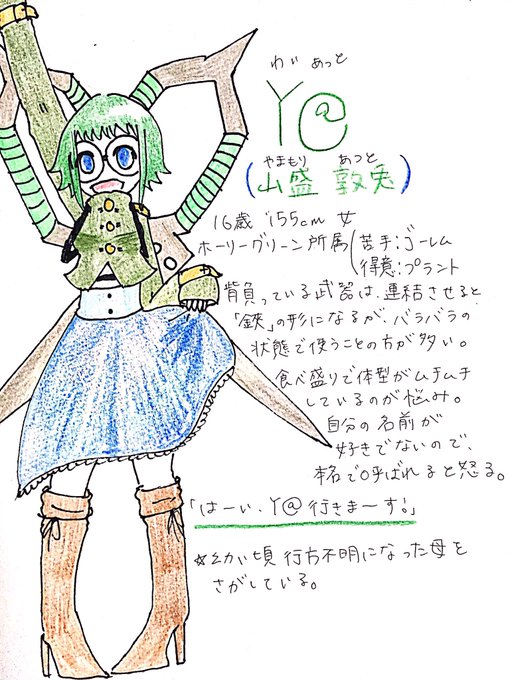 わぁ あっと
Y@
やまもり あつと
(山盛 敦兎)
16歳 155cm 女
ホーリーグリーン所属 苦手:ゴーレム
得意:プラント
背負っている武器は、連結させると
「鋏」の形になるが、バラバラの
状態で使うことの方が多い。
食べ盛りで体型がムチムチ
しているのが悩み。
自分の名前が
好きでないので、
本名で呼ばれると怒る。
「はーい、Y@行きまーす!」
☆幼い頃行方不明になった母を
さがしている。